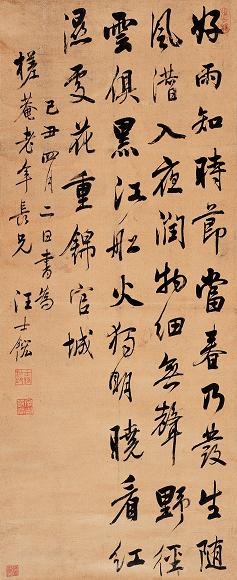 好雨知時節當春乃發生随
風潛入夜潤物細無聲野徑
雲俱黑江船火獨明曉看紅
濕處花重錦官城
己丑四月二日書爲
槎菴老年長兄
汪士鋐